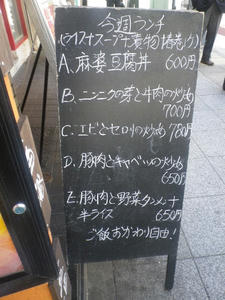 今週ランチ
(ライス+スープ+漬物
A.麻婆豆腐丼 600円
B.ニンニクの芽と牛肉の炒め
700円
C.エビとセロリの炒め 780円
D.豚肉とキャベツの炒め
650円
E.豚肉と野菜タンメン+
半ライス 650円
ご飯おかわり自由!